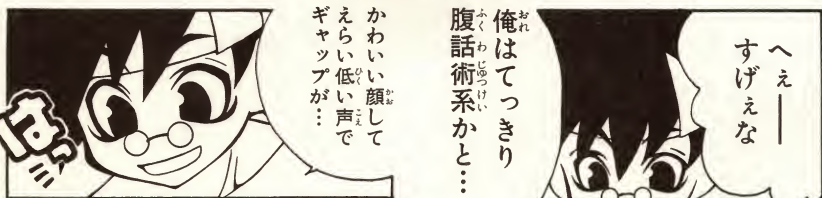 へぇ――
すげぇな
俺はてっきり
腹話術系かと…
かわいい顔して
えらい低い声で
ギャップが…
はっ